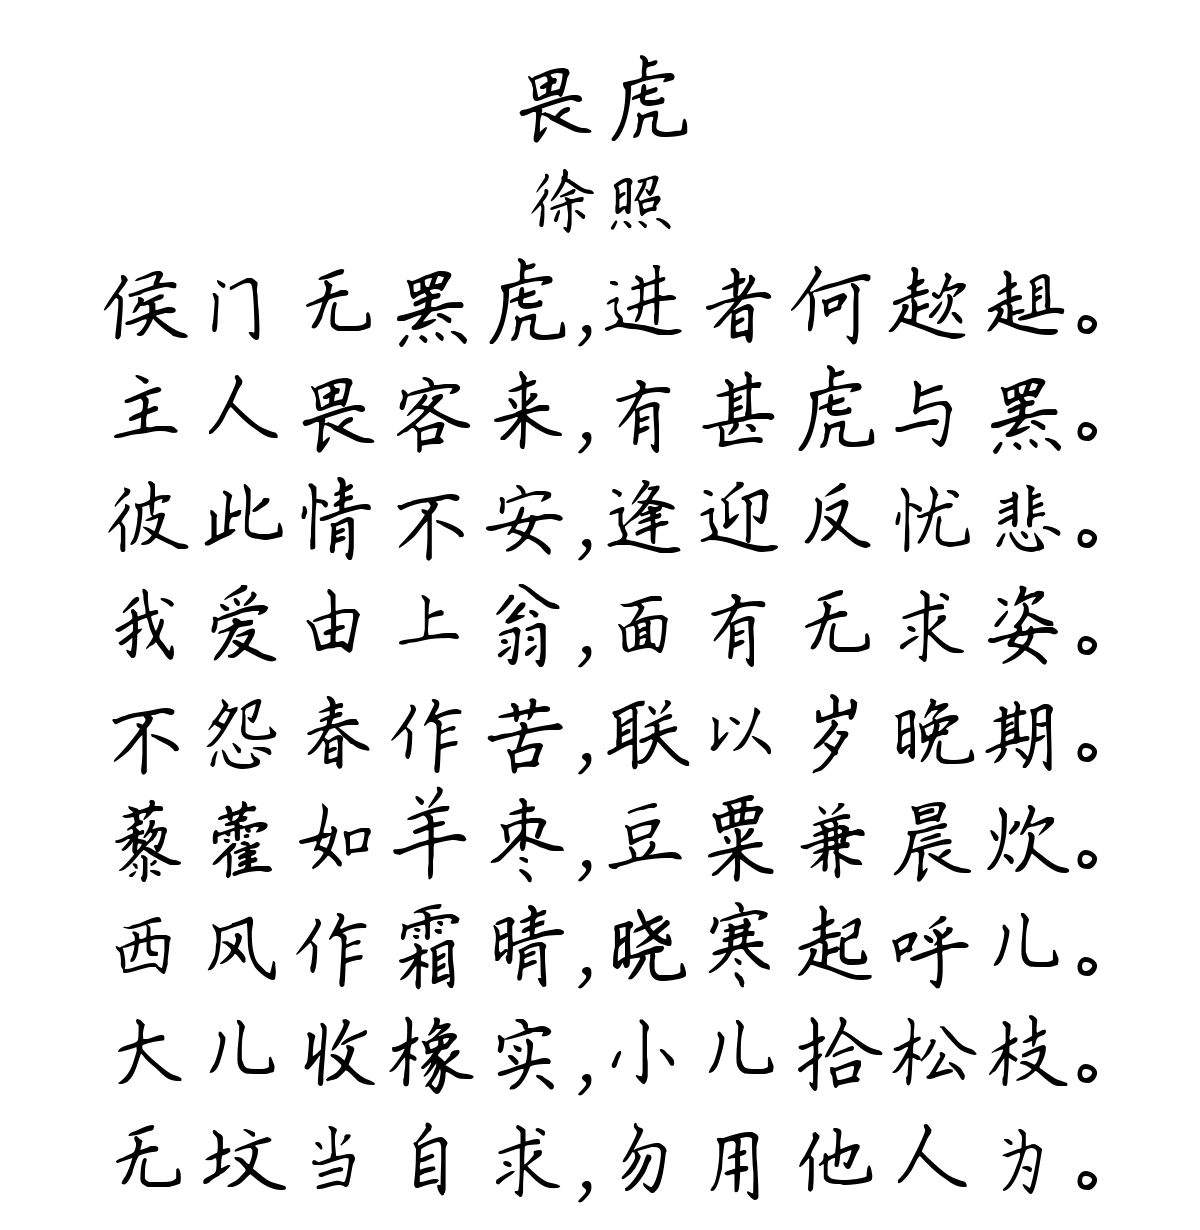 畏虎
徐照
侯门无罴虎,进者何趑趄。
主人畏客来,有甚虎与罴。
彼此情不安,逢迎反忧悲。
我爱由上翁,面有无求姿。
不怨春作苦,联以岁晚期。
藜藿如羊枣,豆粟兼晨炊。
西风作霜晴,晓寒起呼儿。
大儿收橡实,小儿拾松枝。
无坟当自求,勿用他人为。